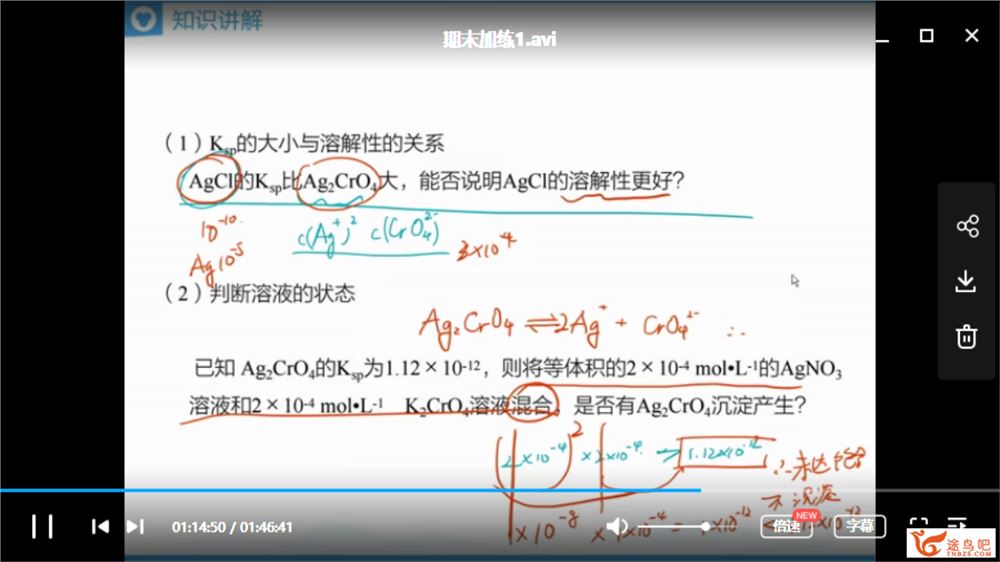 知识讲解
期末加练1.avi
（1）Ksp的大小与溶解性的关系
AgCl的Ksp比Ag2CrO4大，能否说明AgCl的溶解性更好？
10-10
c(Ag+)2 c(CrO42-)
3×10-4
Ag 10-5
（2）判断溶液的状态
Ag2CrO4⇌2Ag+ + CrO42- ∴
已知 Ag2CrO4的Ksp为1.12×10-12，则将等体积的2×10-4 mol•L-1的AgNO3
溶液和2×10-4 mol•L-1 K2CrO4溶液混合，是否有Ag2CrO4沉淀产生？
(2×10-4)2 ×2×10-4 → 1.12×10-12 ∴未达饱
不沉淀
1×10-8 ×1×10-4 = 1×10-12
01:14:50 / 01:46:41
倍速
NEW
字幕
途鸟吧
TNBZS.COM